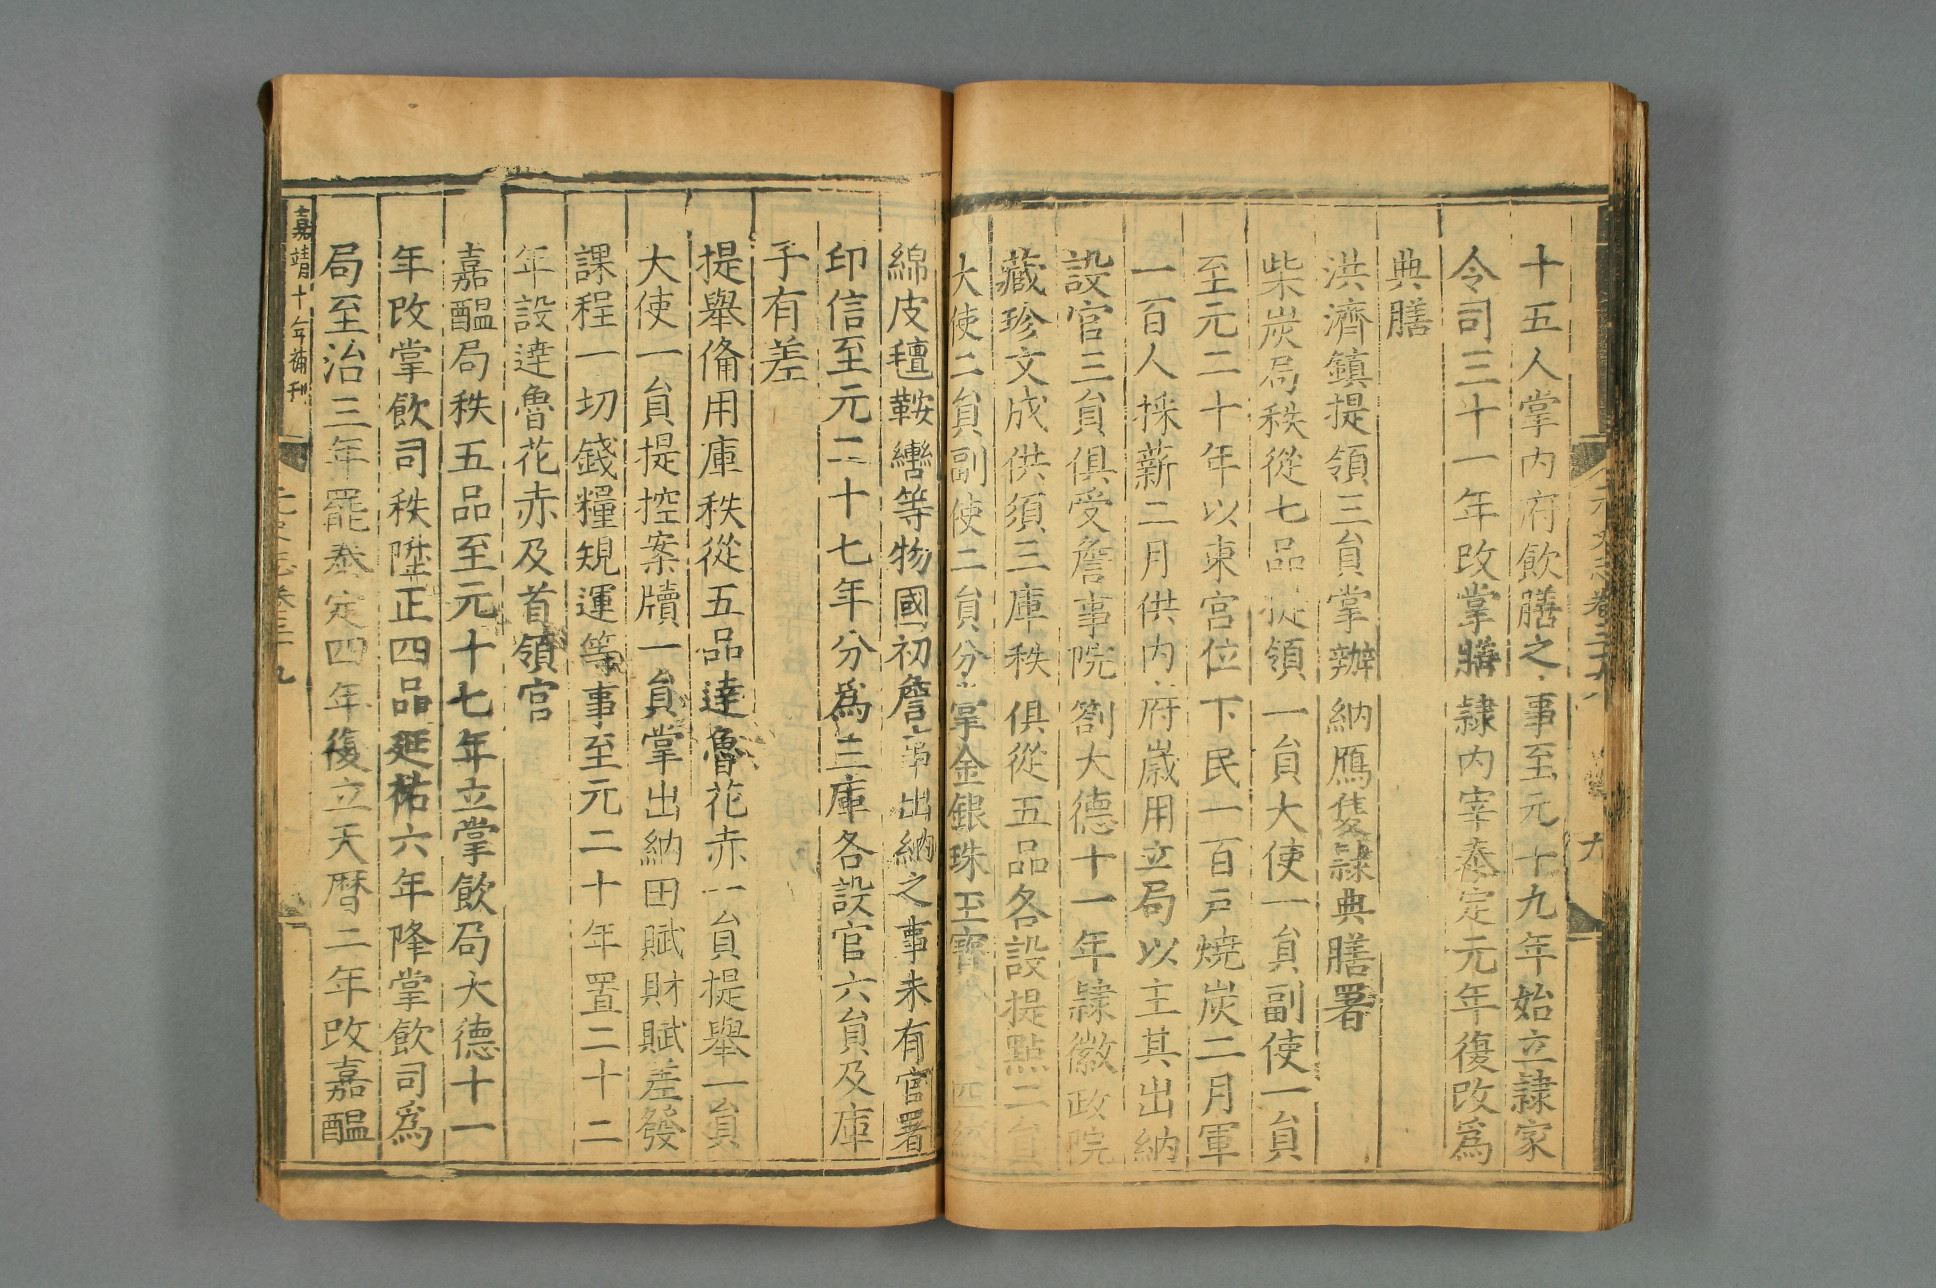 十五人掌内府飲膳之事至元十九年始立隷家
令司三十一年改掌膳隷内宰泰定元年復改爲
典膳
洪濟鎮提領三員掌辦納鴈隻隷典膳署
柴炭局秩從七品提領一員大使一員副使一員
至元二十年以東宮位下民一百戸燒炭二月軍
一百人採薪二月供内府歲用立局以主其出納
設官三員俱受詹事院劄大德十一年隷徽政院
藏珍文成供須三庫秩俱從五品各設提點二員
大使二員副使二員分掌金銀珠玉寳
綿皮氊鞍轡等物國初詹事出納之事未有官署
印信至元二十七年分爲三庫各設官六員及庫
子有差
提舉備用庫秩從五品達魯花赤一員提舉一員
大使一員提控案牘一員掌出納田賦財賦差發
課程一切錢糧規運等事至元二十年置二十二
年設達魯花赤及首領官
嘉醖局秩五品至元十七年立掌飲局大德十一
年改掌飲司秩陞正四品延祐六年降掌飲司爲
局至治三年罷泰定四年復立天暦二年改嘉醖
嘉靖十年補刊
九